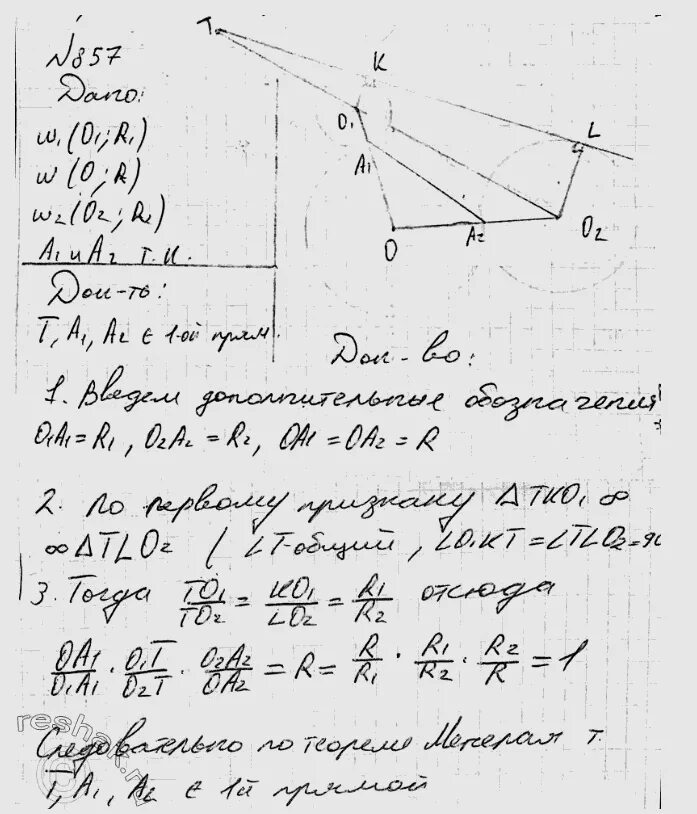 N857
Дано:
w₁(O₁; R₁)
w(O; R)
w₂(O₂; R₂)
A₁ и A₂ т.к.
Док-ть:
T, A₁, A₂ ∈ 1-ой прям.
T
K
O₁
A₁
L
O
A₂
O₂
Док-во:
1. Введем дополнительные обозначения
O₁A₁ = R₁, O₂A₂ = R₂, OA₁ = OA₂ = R
2. По первому признаку ΔTKO₁ ∞
∞ ΔTLO₂ ( ∠T-общий, ∠O₁KT = ∠TLO₂ = 90
3. Тогда TO₁/TO₂ = KO₁/LO₂ = R₁/R₂ отсюда
OA₁/O₁A₁ · O₁T/O₂T · O₂A₂/OA₂ = R = R/R₁ · R₁/R₂ · R₂/R = 1
Следовательно по теореме Менелая т.
T, A₁, A₂ ∈ 1й прямой
reshak.ru